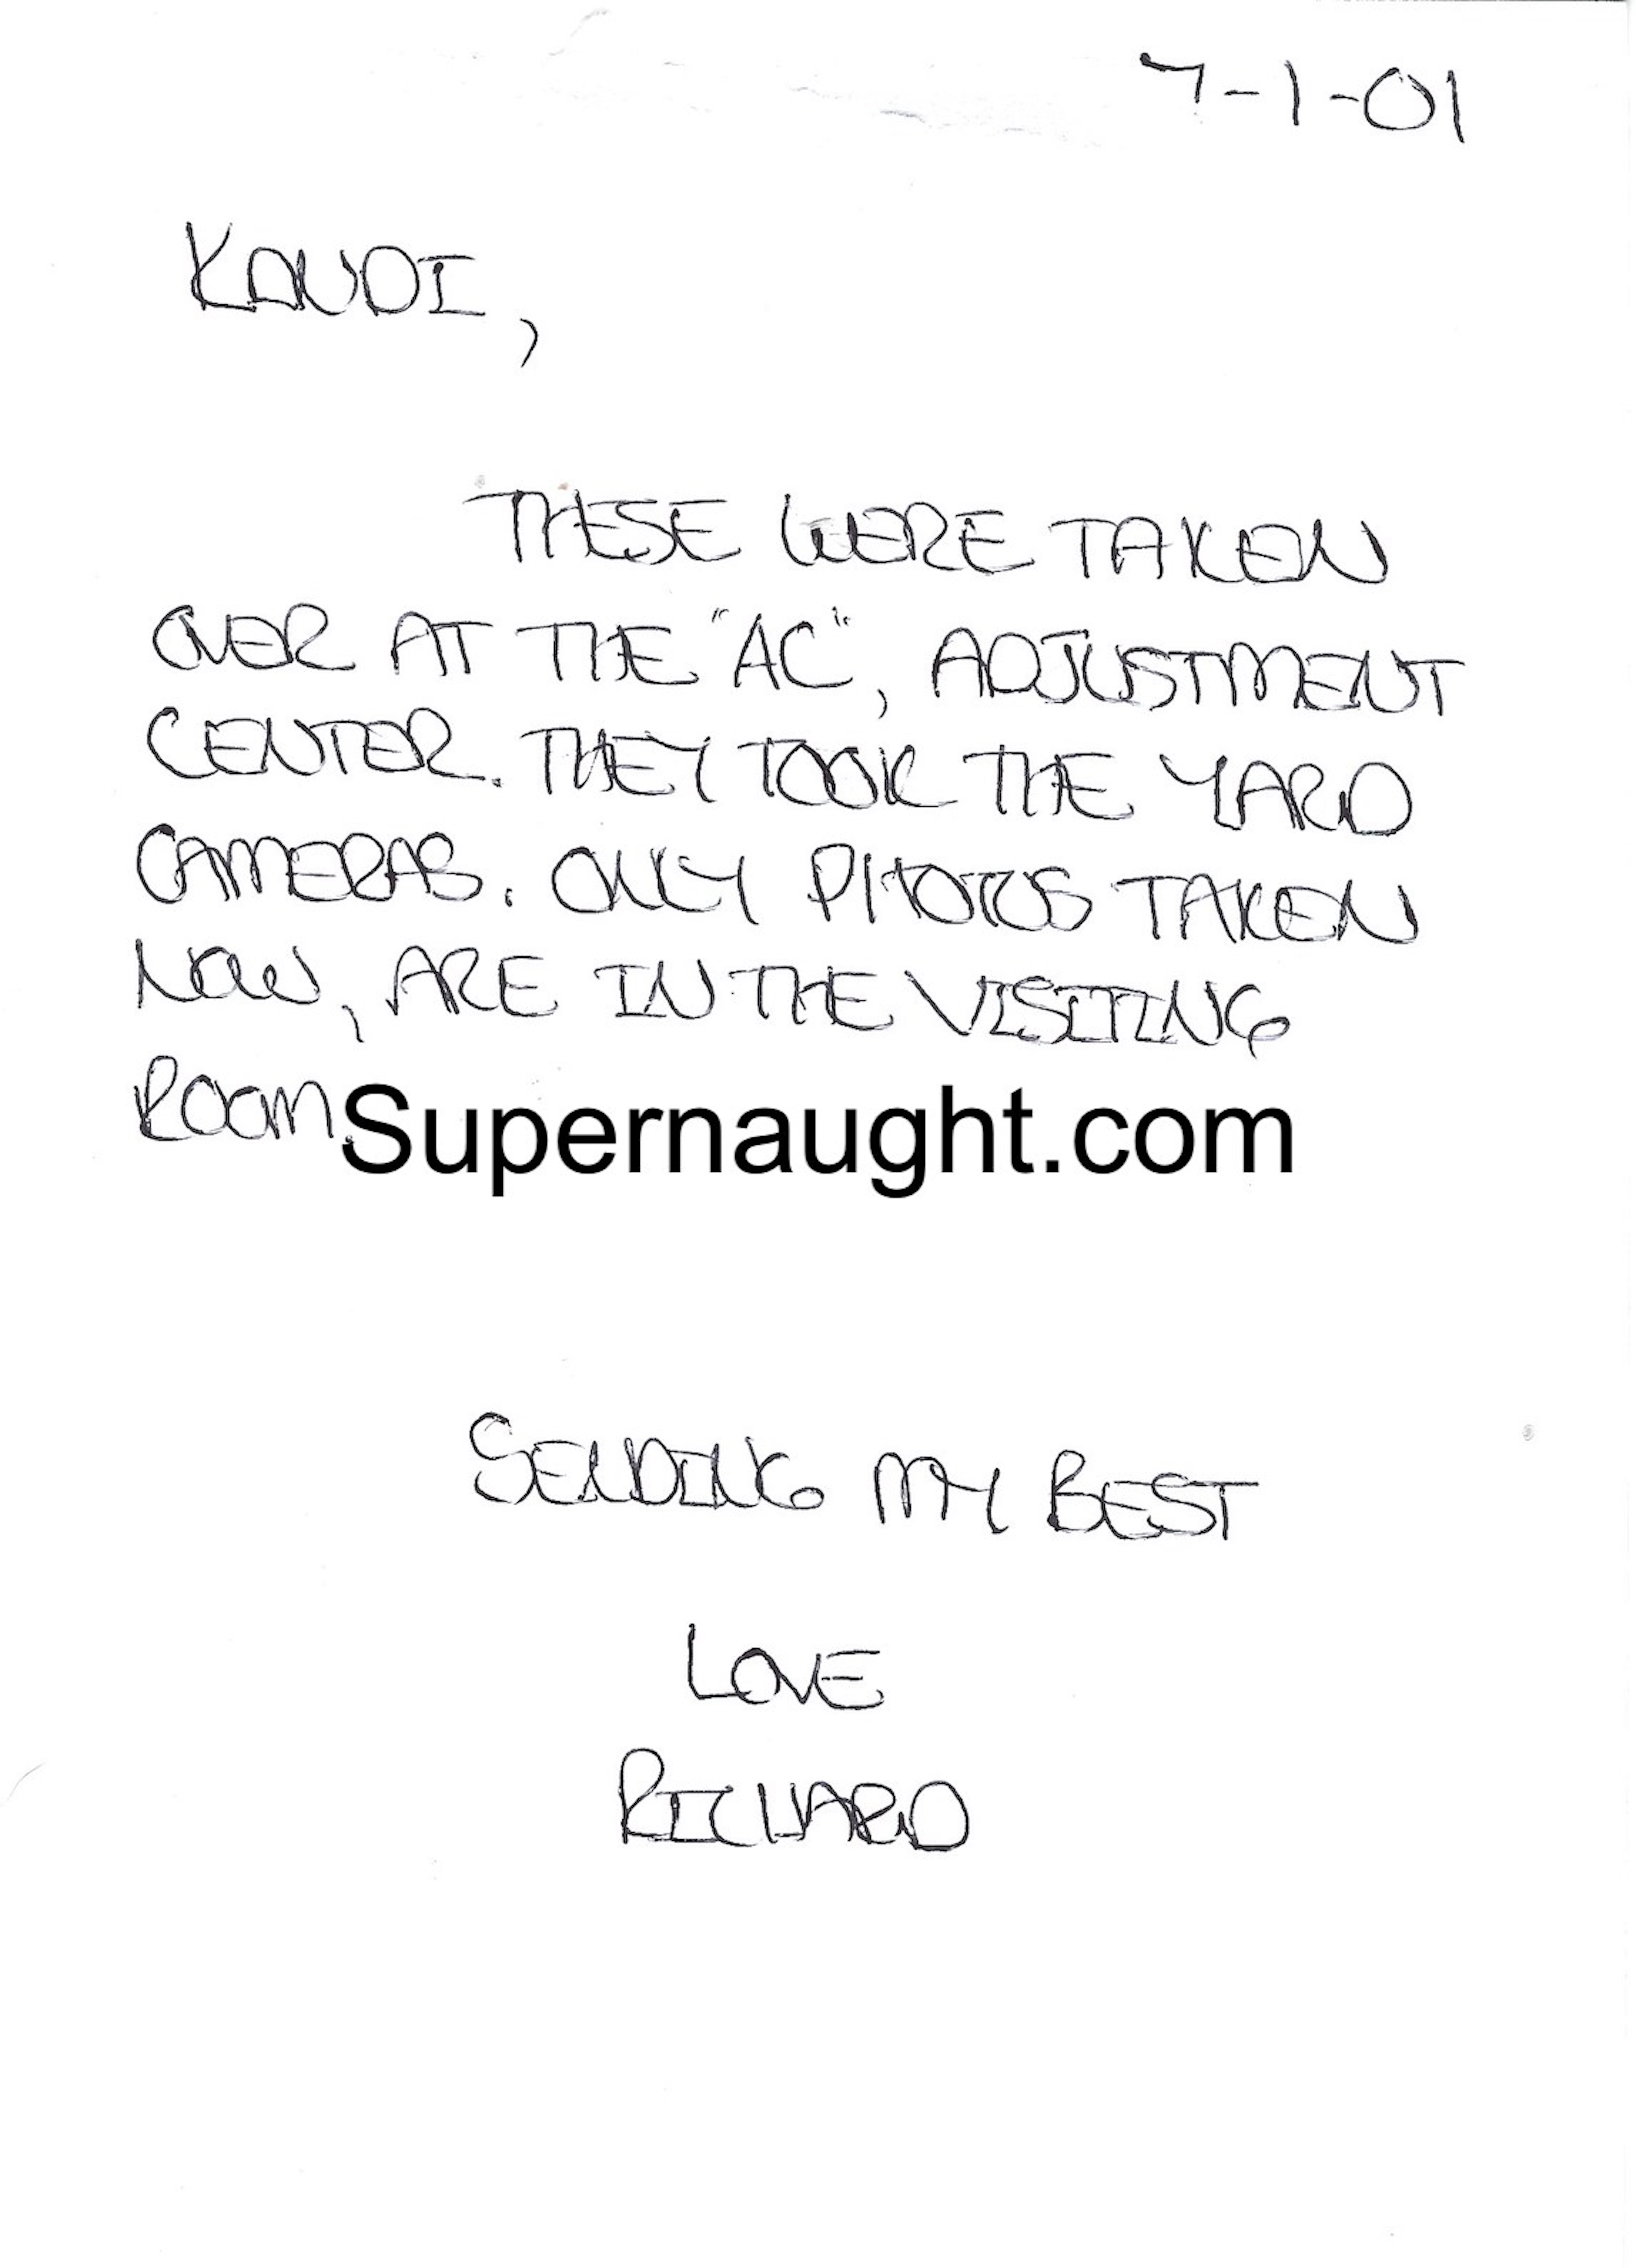 7-1-01
KANDI,
THESE WERE TAKEN
OVER AT THE "AC", ADJUSTMENT
CENTER. THEY TOOK THE YARD
CAMERAS. ONLY PHOTOS TAKEN
NOW, ARE IN THE VISITING
ROOM.
Supernaught.com
SENDING MY BEST
LOVE
RICHARD